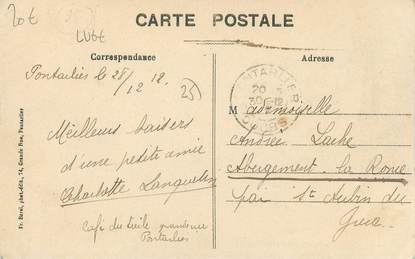 20€
LUGE
CARTE POSTALE
Correspondance
Adresse
Pontarlier le 28/12 12.
25
Meilleurs baisers
d'une petite amie
Charlotte Languetin
Café du grande rue
Pontarlier
PONTARLIER
20
DOUBS
Mademoiselle
Andrée
Abergement la Ronce
par St Aubin du
Jura
Fr. Borel, phot-édit., 74, Grande Rue, Pontarlier